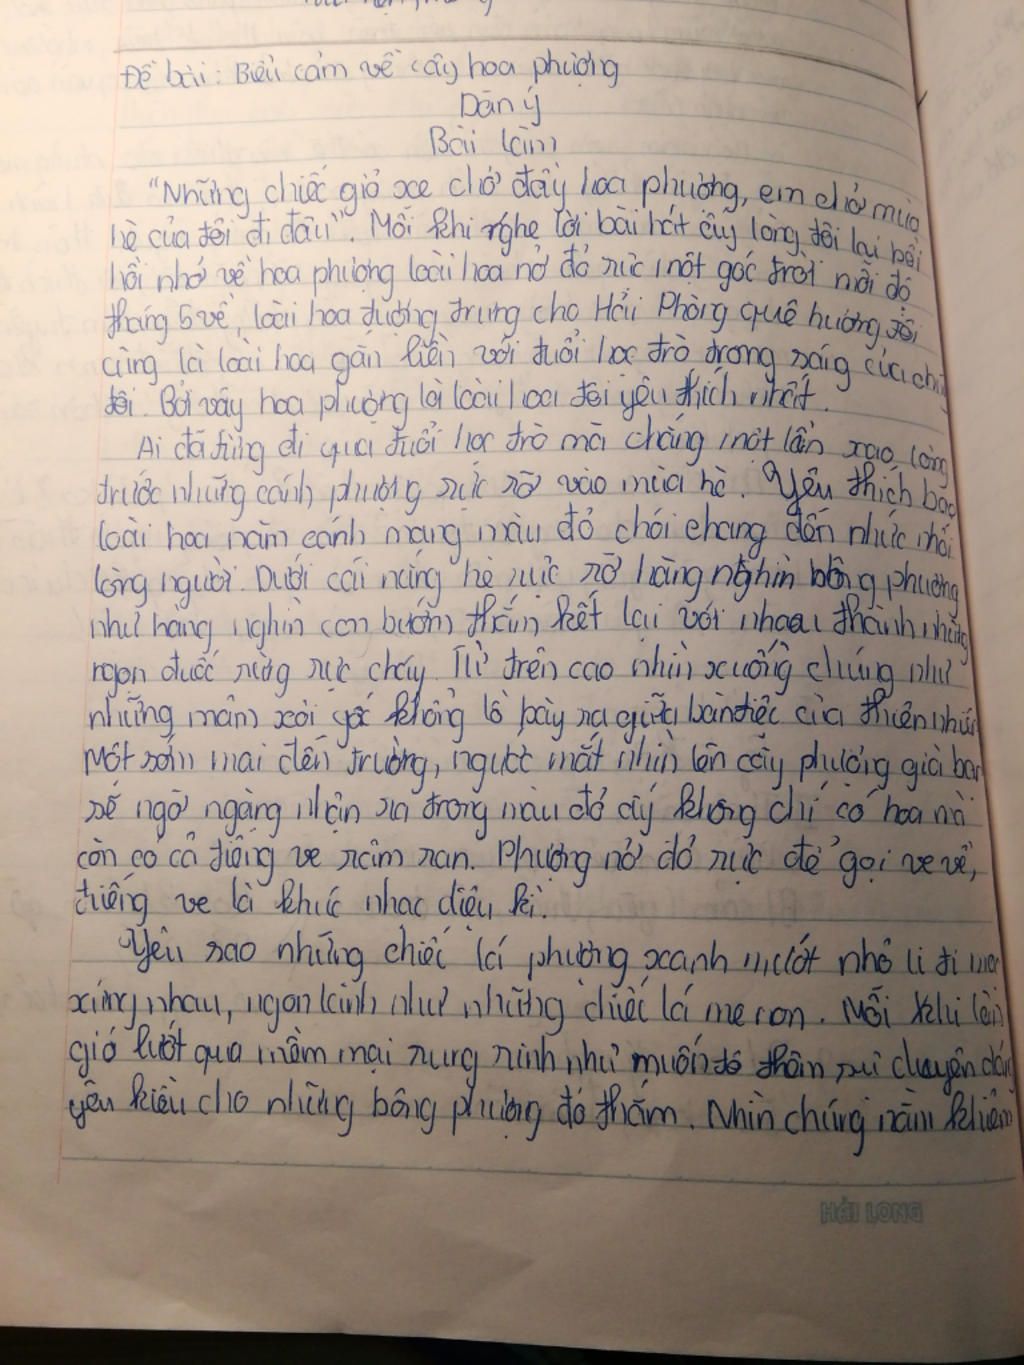 Đề bài: Biểu cảm về cây hoa phượng
Dàn ý
Bài làm
"Những chiếc giỏ xe chở đầy hoa phượng, em chở mùa
hè của tôi đi đâu". Mỗi khi nghe lời bài hát ấy lòng tôi lại bồi
hồi nhớ về hoa phượng loài hoa nở đỏ rực một góc trời mỗi độ
tháng 5 về, loài hoa tượng trưng cho Hải Phòng quê hương tôi
cũng là loài hoa gắn liền với tuổi học trò trong sáng của chúng
tôi. Bởi vậy hoa phượng là loài hoa tôi yêu thích nhất.
Ai đã từng đi qua tuổi học trò mà chẳng một lần xao lòng
trước những cánh phượng rực rỡ vào mùa hè. Yêu thích bao
loài hoa năm cánh mang màu đỏ chói chang đến nhức nhối
lòng người. Dưới cái nắng hè rực rỡ hàng nghìn bông phượng
như hàng nghìn con bướm thắm kết lại với nhau thành những
ngọn đuốc rừng rực cháy. Từ trên cao nhìn xuống chúng như
những mâm xôi gấc khổng lồ bày ra giữa bàn tiệc của thiên nhiên
Một sớm mai đến trường, ngước mắt nhìn lên cây phượng già bạn
sẽ ngỡ ngàng nhận ra trong màu đỏ ấy không chỉ có hoa mà
còn có cả tiếng ve râm ran. Phượng nở đỏ rực để gọi ve về,
tiếng ve là khúc nhạc diệu kì.
Yêu sao những chiếc lá phượng xanh mướt nhỏ li ti mọc
xứng nhau, ngon lành như những chiếc lá me non. Mỗi khi làn
gió lướt qua mềm mại rung rinh như muốn thầm rủ chuyện
yêu kiều cho những bông phượng đỏ thắm. Nhìn chúng nằm khiêm
HẢI LONG